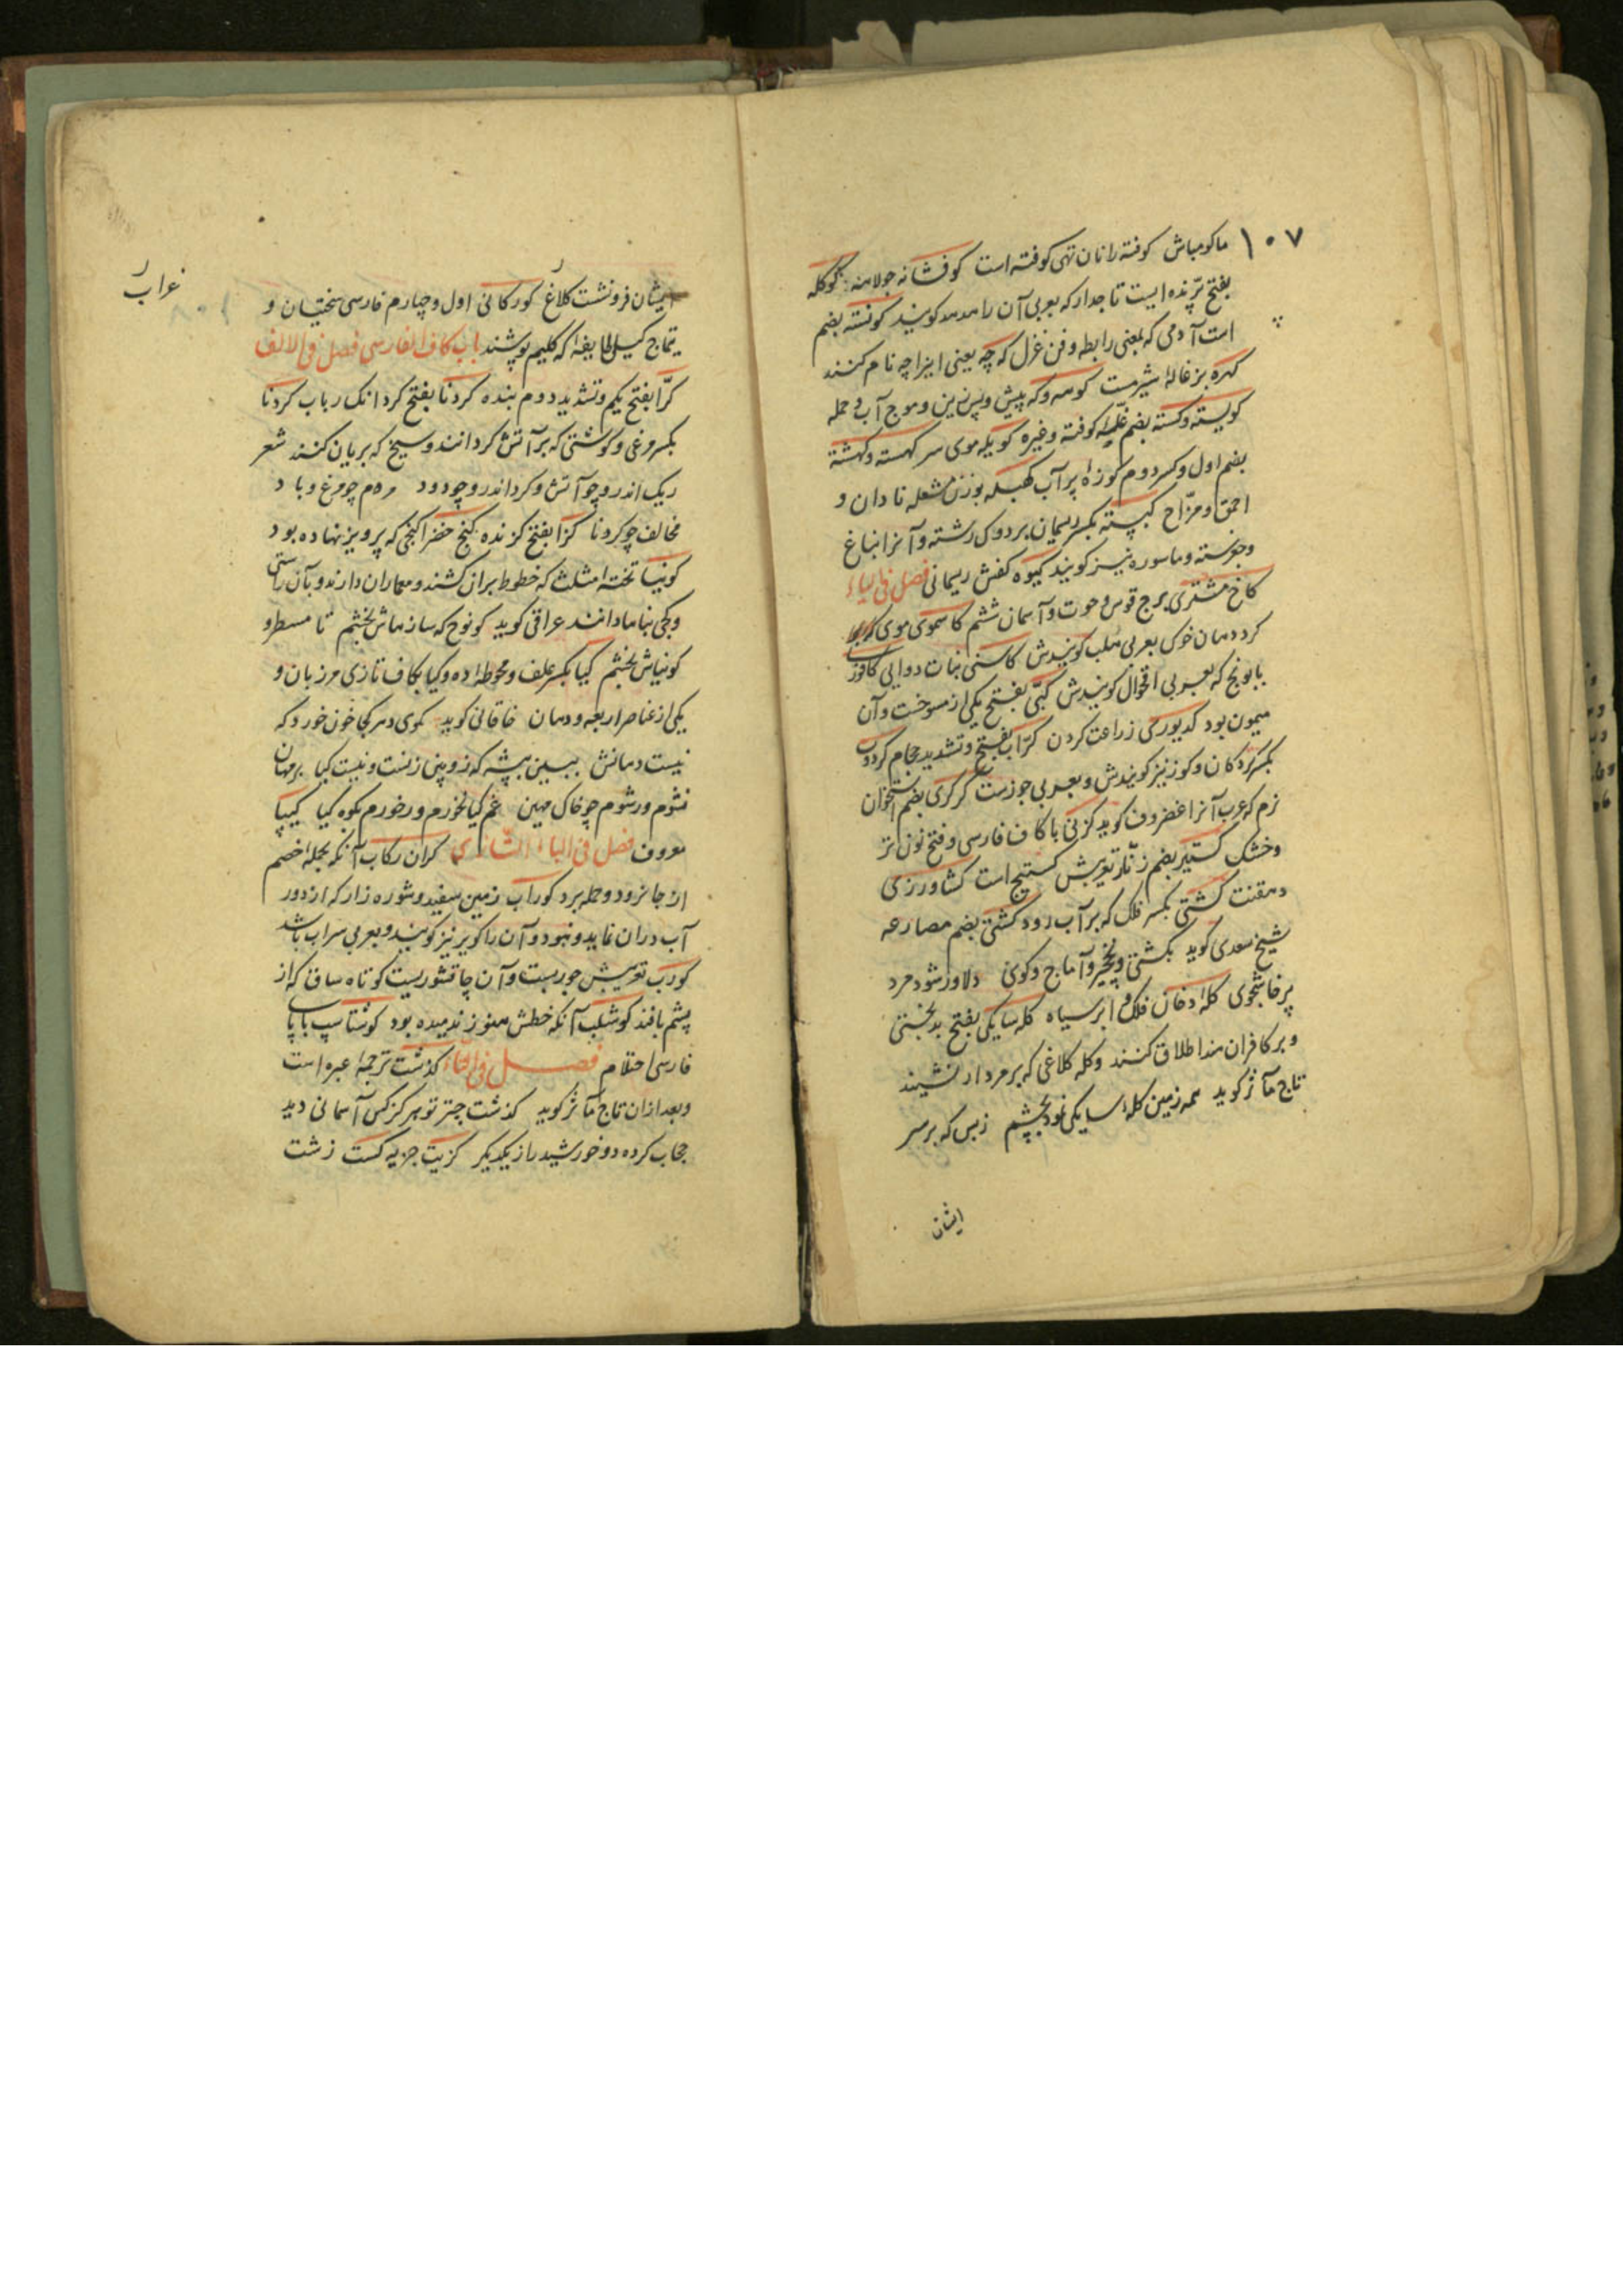 ۱۰۷
ماکو مباش کوفته را نان تهی کوفته است کوفشانه جولاهه کوکله
بفتح پرنده ایست تاجدار که بعربی آن را هدهد کویند کونسته بضم
است آدمی که بمعنی رابطه و فن غزل که چه یعنی اینرا چه نام کنند
کهره بزغالهٔ شیرمست کوهه و که پیش و پس زین و موج آب و حمله
کویسته و کسته بضم غلهٔ کوفته و غیره کویله موی سر کهسته و کهشته
بضم اول و کسر دوم کوزهٔ پر آب کهبله بوزن مشعله نادان و
احمق و مزاح کیپسته بکسر ریمان بر دوک رشته و آنرا نباغ
و جوسته و ماسوره نیز کویند کیوه کفش ریسمانی فصل فی الیاء
کاخ مشتری برج قوس و حوت و آسمان ششم کاسموی موی
کرد دهان خوک بعربی هلب کویندش کاسنی نبات دوایی کاوز
بابونج که بعربی اقحوان کویندش کپی بفتح یکی از مسوخست و آن
میمون بود کدیوری زراعت کردن کراب بفتح و تشدید حجام کردوب
بکسر کردکان و کوز نیز کویندش و بعربی جوزست کرکری بضم استخوان
نرم که عرب آنرا غضروف کوید کزنی با کاف فارسی و فتح نون تر
و خشک کستیر بضم زنار تعریبش کستیج است کشاورزی
دهقنت کشتی بکسر فلک که بر آب رود کشتی بضم مصارعه
شیخ سعدی کوید بکشتی و نخجیر و آماج و کوی دلاور شود مرد
پرخاشجوی کلهٔ دخان فلک و ابر سیاه کله سایکی بفتح بدبختی
و بر کافران هند اطلاق کنند و کله کلاغی که بر مردار نشیند
تاج مآثر کوید همه زمین کلهٔ سایکی نمود بچشم ز بس که بر سر
ایشان
ایشان فرو نشست کلاغ کورکانی اول و چهارم فارسی سختیان و
تیماج کیل طایفهٔ که کلیم پوشند باب کاف الفارسی فصل فی الالف
کرّا بفتح یکم و تشدید دوم بنده کردنا بفتح کردانک رباب کردنا
بکسر وغی و کوشتی که بر آتش کردانند و سیخ که بریان کنند شعر
ریک اندر و چو آتش و کرد اندر و چو دود مردم چو مرغ و باد
مخالف چو کردنا کزا بفتح کزنده کنج خضرا کنجی که پرویز نهاده بود
کونیا تخته مثلث که خطوط بران کشند و معماران دارند و بآن راستی
و کجی بناها دانند عراقی کوید کو نوح که سازهاش بخشم تا مسطر و
کونیاش بخشم کیا بکسر علف و محوطهٔ ده و کیا بکاف تازی مرزبان و
یکی از عناصر اربعه و دهان خاقانی کوید کوی دهر کجا خون خورد که
نیست دهانش ببین بپشه که زوبین زنست و نیست کیا
نشوم ور شوم چو خاک مهین غم کیا نخورم ور خورم بکوه کیا کیپا
معروف فصل فی الباء کران رکاب آنکه بحملهٔ خصم
از جا نرود و حمله برد کوراب زمین سفید و شوره زار که از دور
آب دران نماید و نبود و آن را کویر نیز کویند و بعربی سراب باشد
کورب تعریبش جوربست و آن چاقشوریست کوتاه ساق که از
پشم بافند کوشلب آنکه خطش هنوز ندمیده بود کوشتاسپ با پای
فارسی احتلام فصل فی التاء کذشت ترجمهٔ عبره است
و بعد ازان تاج مآثر کوید کذشت چتر تو هر کز کس آسمانی دید
حجاب کرده دو خورشید را ز یکدیکر کزیت جزیه کست زشت
غراب